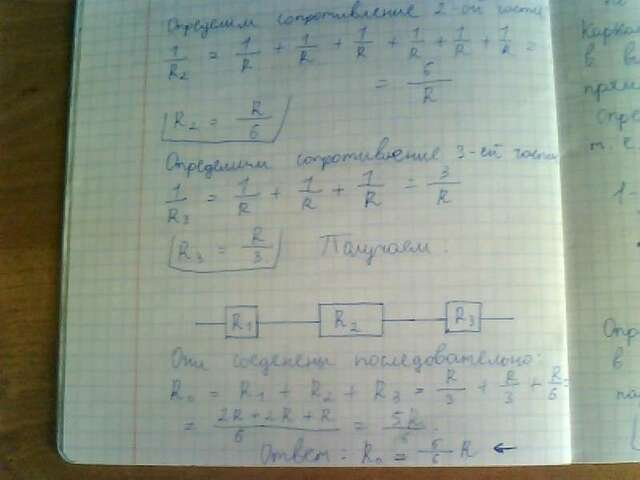 Определим сопротивление 2-ой части
1/R₂ = 1/R + 1/R + 1/R + 1/R + 1/R + 1/R =
= 6/R
R₂ = R/6
Определим сопротивление 3-ей части
1/R₃ = 1/R + 1/R + 1/R = 3/R
R₃ = R/3 Получаем:
R₁ R₂ R₃
Они соеденены последовательно:
R₀ = R₁ + R₂ + R₃ = R/3 + R/3 + R/6 =
= 2R+2R+R/6 = 5R/6.
Ответ: R₀ = 5/6 R ←
Карка
в в
прям
Опре
т. е.
1-
Опр
в
па